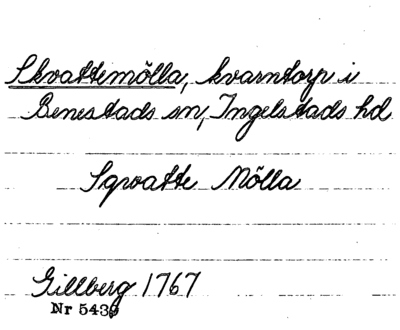 Skvattemölla, kvarntorp i
Benestads sn, Ingelstads hd
Sqvatte Mölla
Gillberg 1767
Nr 5439